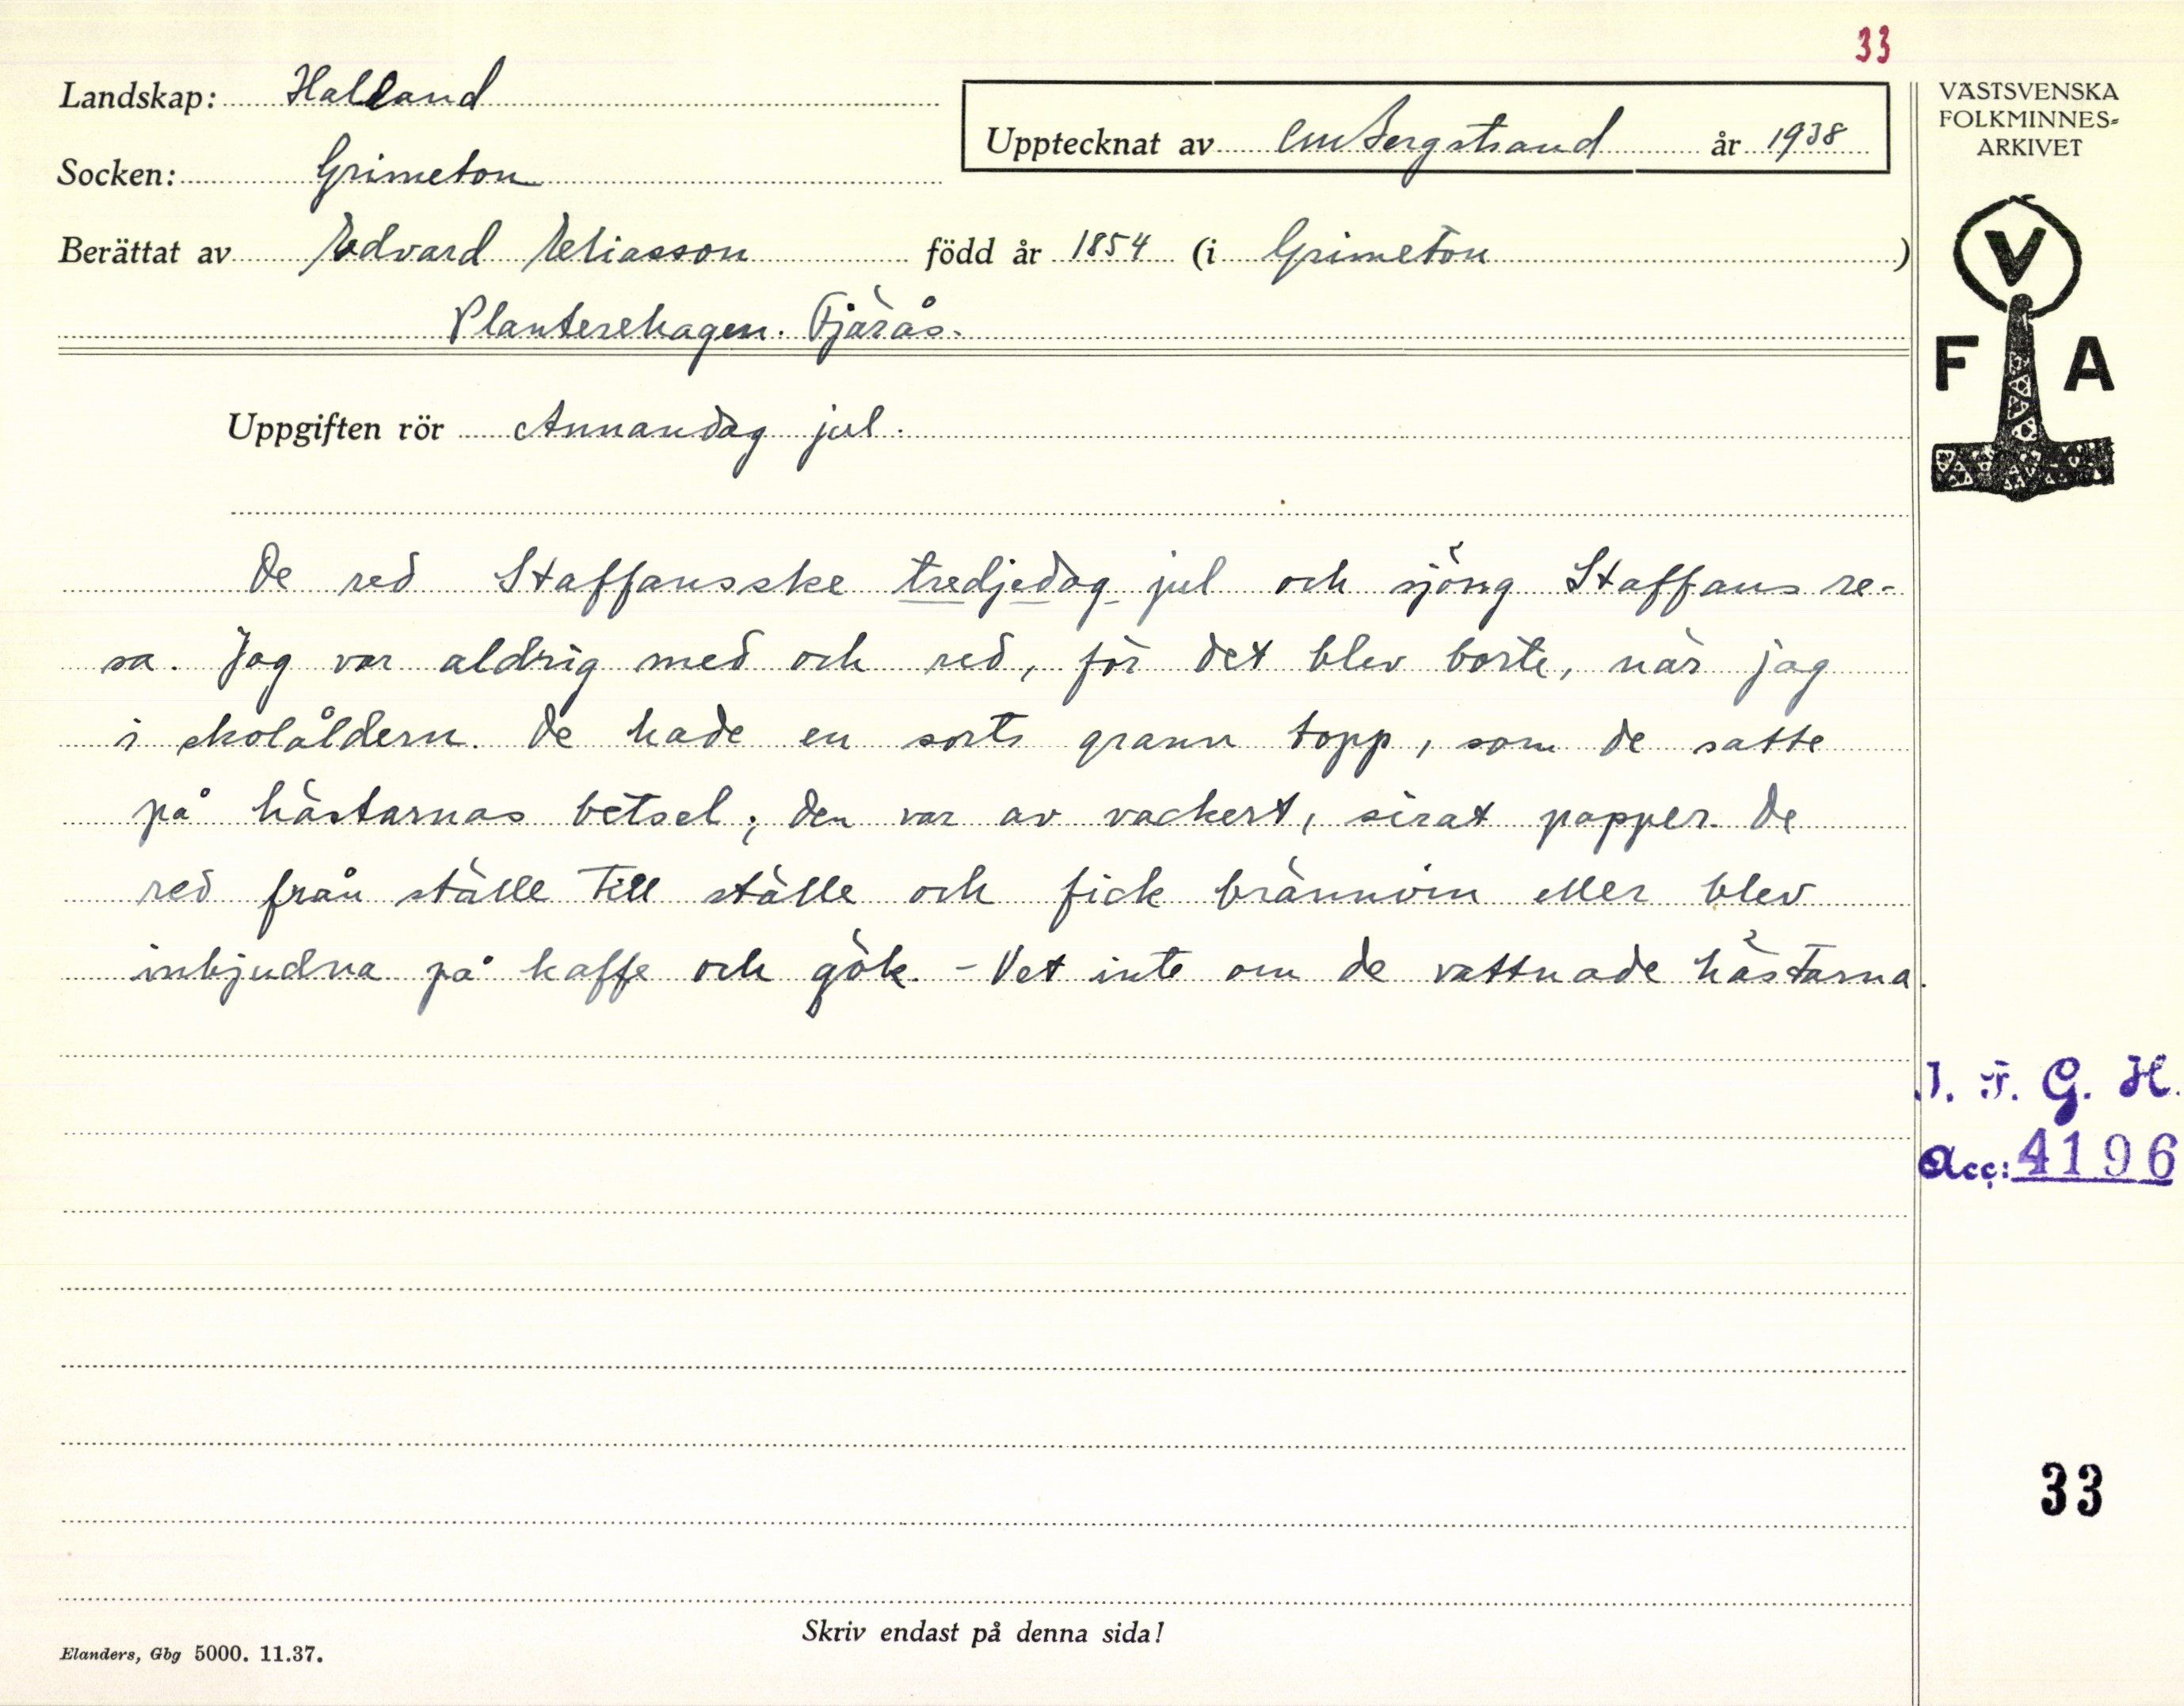 33
Landskap: Halland
Upptecknat av CM Bergstrand år 1938
VÄSTSVENSKA
FOLKMINNES-
ARKIVET
Socken: Grimeton
Berättat av Edvard Eliasson född år 1854 (i Grimeton)
Planterehagen. Fjärås.
V
F A
Uppgiften rör Annandag jul.
De red Staffansske tredjedag jul och sjöng Staffans re-
sa. Jag var aldrig med och red, för det blev borte, när jag
i skolåldern. De hade en sorts grann topp, som de satte
på hästarnas betsel; den var av vackert, sirat papper. De
red från ställe till ställe och fick brännvin eller blev
inbjudna på kaffe och gök. - Vet inte om de vattnade hästarna.
I. F. G. H.
Acc: 4196
33
Skriv endast på denna sida!
Elanders, Gbg 5000. 11.37.